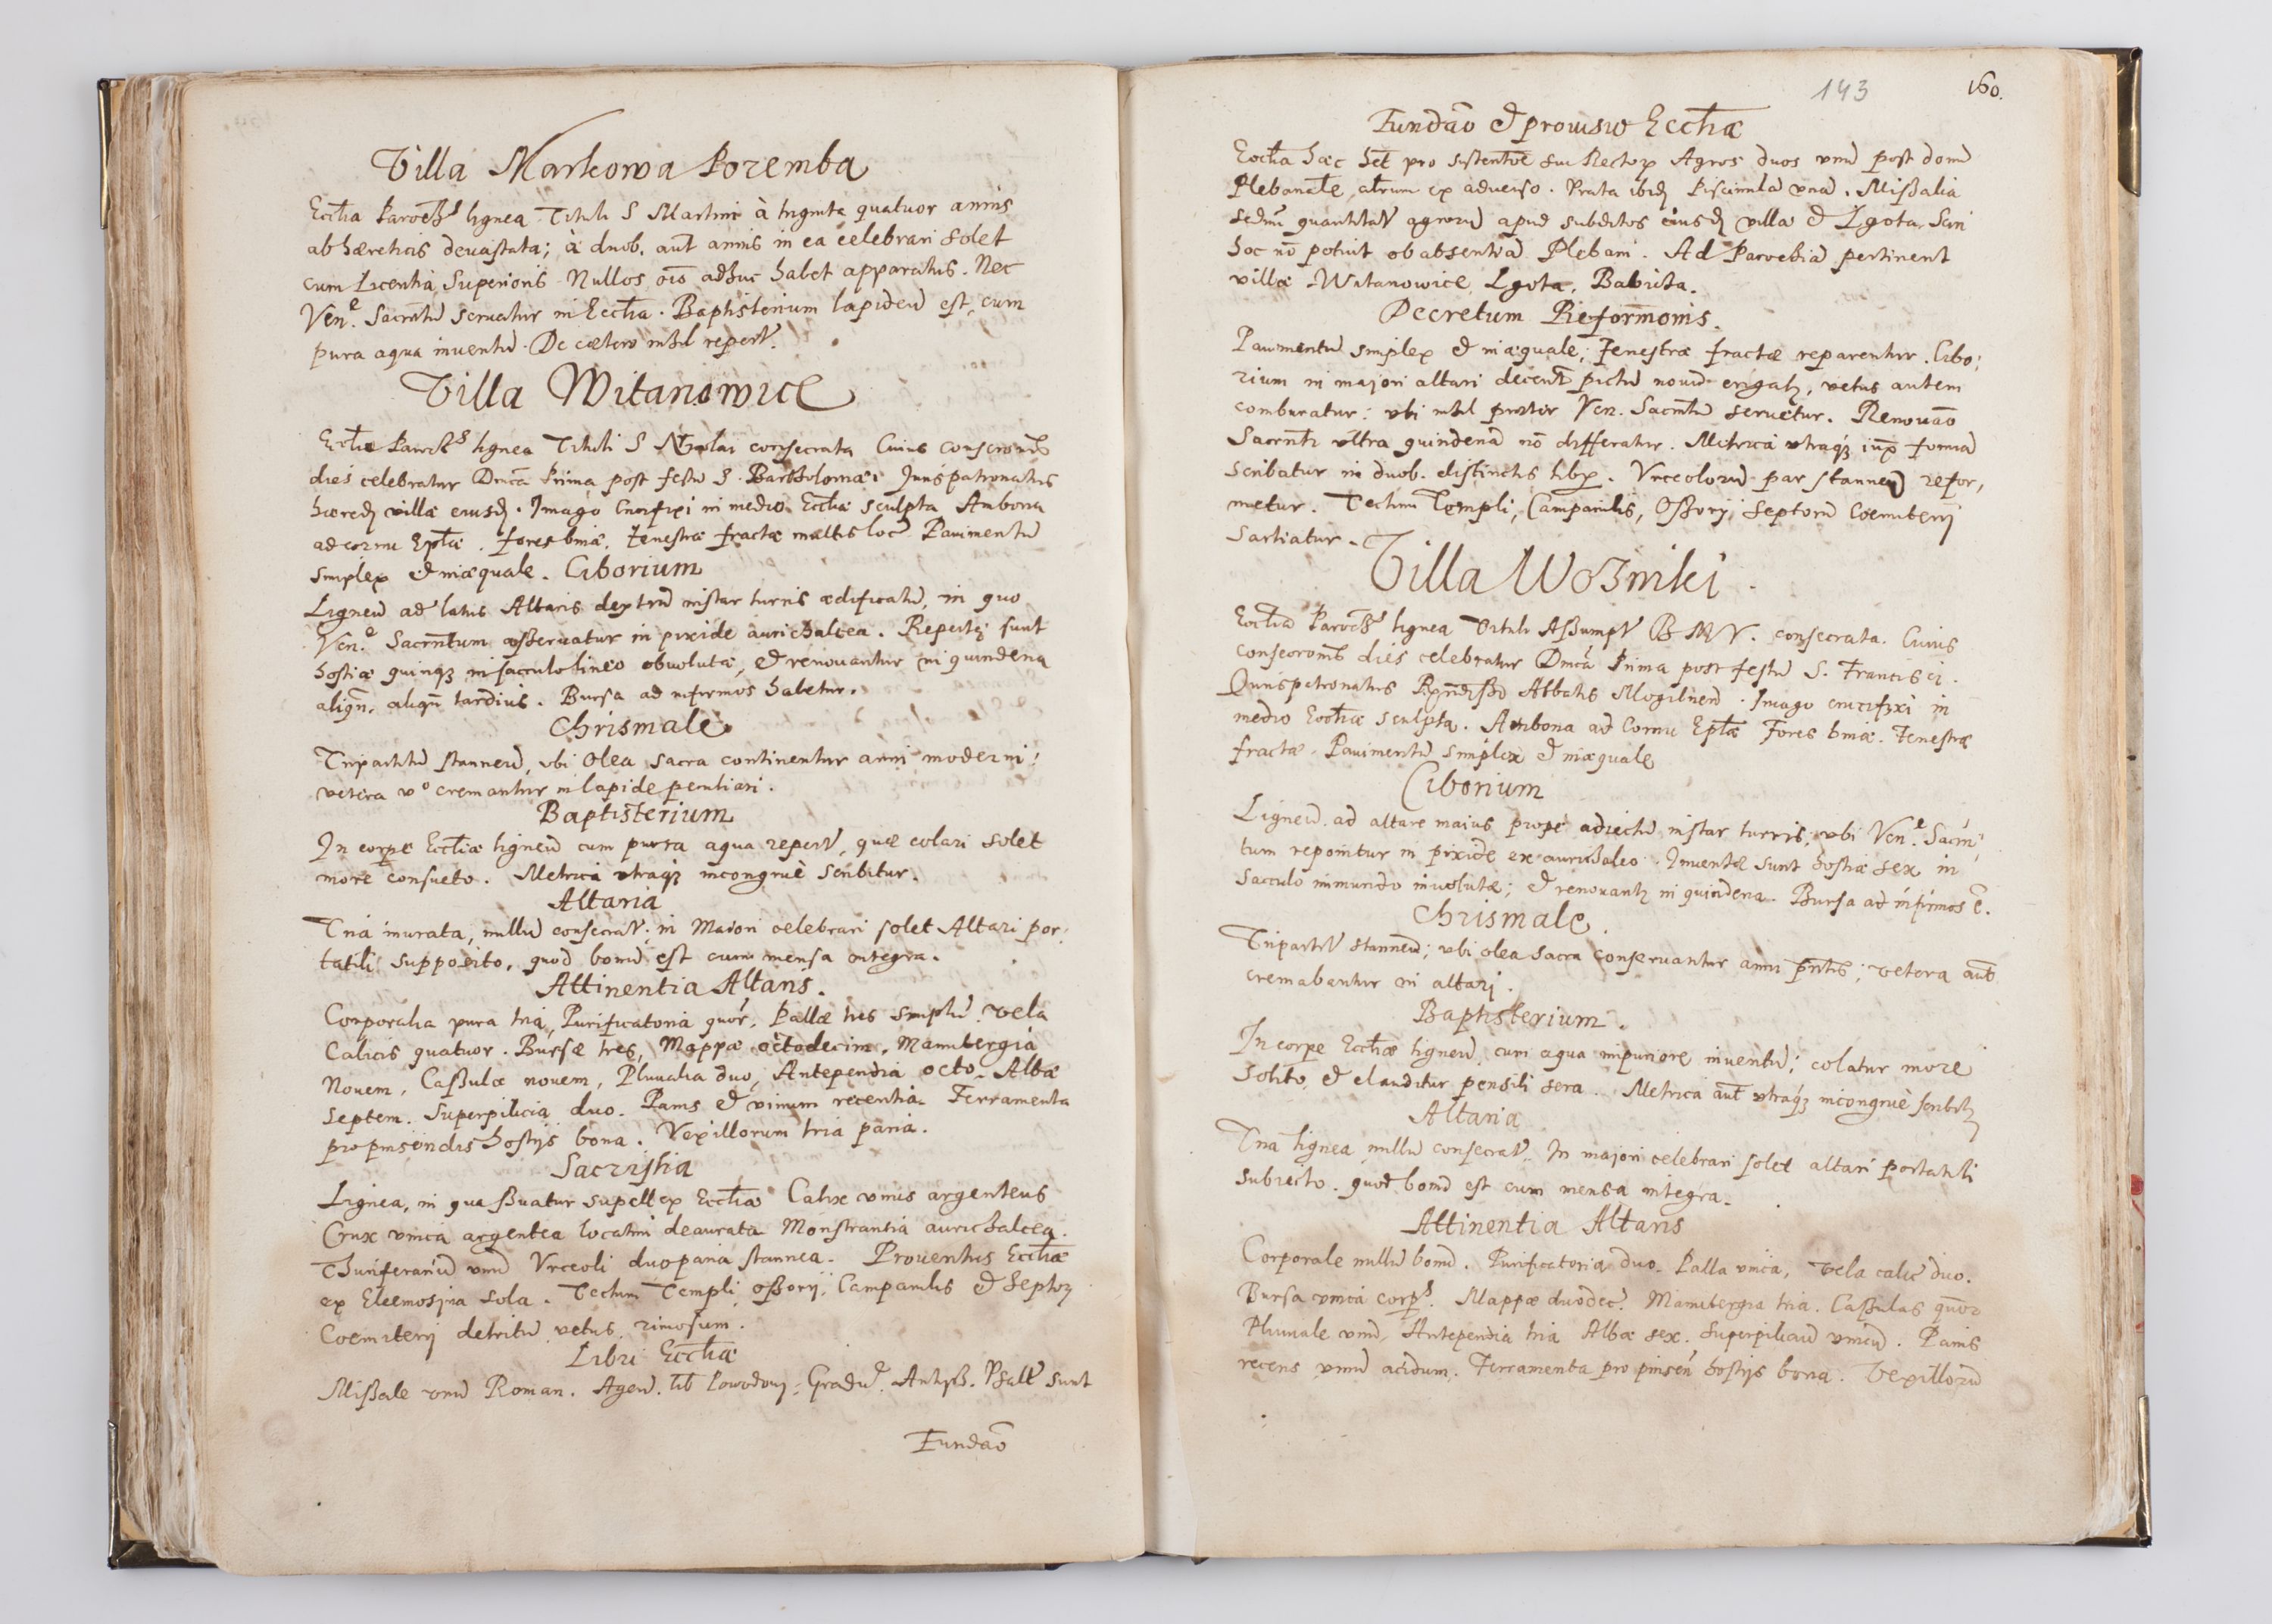 Villa Markowa Poremba
Ecctia Paroch lignea Tituli S Martini à triginta quatuor annis
ab hæreticis deuastata; à duob. aut annis in ea celebrari solet
cum licentia Superioris. Nullos oīo adhuc habet apparatus. Nec
Ven.e Sacrntū seruatur in Ecctia. Baptisterium lapideū est, cum
pura aqua inuentū. De cætero nihil repert.
Villa Witanowice
Ecctia Paroch lignea Tituli S Nicolai consecrata Cuius consecronis
dies celebratur Dnica Prima post festū S. Bartholomæi Juris patronatus
hæredū villæ eiusd. Imago Crucifixi in medio Ecctiæ sculpta Ambona
ad cornu Eptæ. fores binæ. Fenestræ fractæ multis loc Pauimentū
simplex & inæquale. Ciborium
Ligneū ad latus Altaris dextrū instar turris ædificatū, in quo
Ven.e Sacrntum asseruatur in pixide aurichalcea. Repertæ sunt
hostiæ quinqz in sacculo lineo obuolutæ, & renouantur in quindena
aliqn, aliqn tardius. Bursa ad infirmos habetur.
Chrismale
Tripartitū stanneū, vbi Olea sacra continentur anni moderni:
vetera vo cremantur in lapide penliari.
Baptisterium
In corpe Ecctiæ ligneū cum pura aqua repert, quæ colari solet
more consueto. Metrica vtraqz incongruè scribitur.
Altaria
Tria murata, nullū consecrat; in Maiori celebrari solet Altari por,
tatili supposito, quod bonū est cum mensa integra.
Attinentia Altaris.
Corporalia pura tria, Purificatoria quor, Pallæ tres simpli. vela
Calicis quatuor. Bursæ tres, Mappæ octodecim, Manutergia
Nouem, Cassulæ nouem, Pluuialia duo, Antependia octo. Albæ
Septem. Superpilicia duo. Panis & vinum recentia. Ferramenta
pro pinsendis hostijs bona. Vexillorum tria paria.
Sacristia
Lignea, in qua ßuatur supellex Ecctiæ Calix vnus argenteus
Crux vnica argentea locatim deaurata Monstrantia aurichalcea.
Thuriferariū vnū Vrceoli duo paria stannea. Prouentus Ecctiæ
ex Eleemosina sola. Tectum Templi, oßorij, Campanilis & Septor
Coemiterij detritū vetus rimosum.
Libri Ecctiæ
Missale vnū Roman. Agen. Powodow, Gradu. Antiph. Psalt sunt
Fundaō
143 160.
Fundaō & prouisio Ecctiæ
Ecctia hæc het pro sustentoe sui Rector Agros duos vnū post domū
Plebanale, alrum ex aduerso. Prata ibid Piscinulā vnā. Missalia
Sedm quantitat agrorū apud subditos eiusd villæ & Lgota. Sciri
hoc no potuit ob absentiā Plebani. Ad Parochiā pertinent
villæ Witanowice, Lgota, Babica.
Decretum Reformonis.
Pauimentū simplex & inæquale; Fenestræ fractæ reparentur. Cibo,
rium in majori altari decent pictū nouū erigat, vetus autem
comburatur: vbi nihil præter Ven. Sacrntū seruetur. Renouaō
Sacrnti vltra quindenā no differatur. Metrica vtraqz iux formā
scribatur in duob. distinctis libr. Vrceolorū par stanneū refor,
metur. Tectum Templi, Campanilis, Oßorij septorū Coemiterij
Sartiatur.
Villa Wozniki
Ecctia Paroch lignea Tituli Assumpt B M V. consecrata. Cuius
consecronis dies celebratur Dnica Prima post festū S. Francisci.
Juris patronatus Rndissi Abbatis Mogilnen. Imago crucifixi in
medio Ecctiæ sculpta. Ambona ad Cornu Eptæ Fores binæ. Fenestræ
fractæ. Pauimentū simplex & inæquale
Ciborium
Ligneū. ad altare maius prope adiectū instar turris, vbi Ven.e Sacrn,
tum reponitur in pixide ex aurichalco. Inuentæ sunt hostiæ sex in
Sacculo immundo inuolutæ; & renouant in quindena. Bursa ad infirmos e.
Chrismale.
Tripartit stanneū; vbi olea sacra conseruantur anni pntis; vetera aut
cremabantur in altari.
Baptisterium.
In corpe Ecctiæ ligneū cum aqua impuriore inuentū; colatur more
solito, & clauditur pensili sera. Metrica aut vtraqz incongruè scribit
Altaria
Tria lignea nullū consecrat. In majori celebrari solet altari portatili
subiecto. quod bonū est cum mensa integra.
Attinentia Altaris
Corporale nullū bonū. Purificatoria duo. Palla vnica, vela calic duo.
Bursa vnica corp. Mappæ duodec. Manutergia tria. Cassulas quor
Pluuiale vnū, Antependia tria Albæ sex. Superpiliciū vnicū. Panis
recens vinū acidum. Ferramenta pro pinsen hostijs bona. Vexillorū